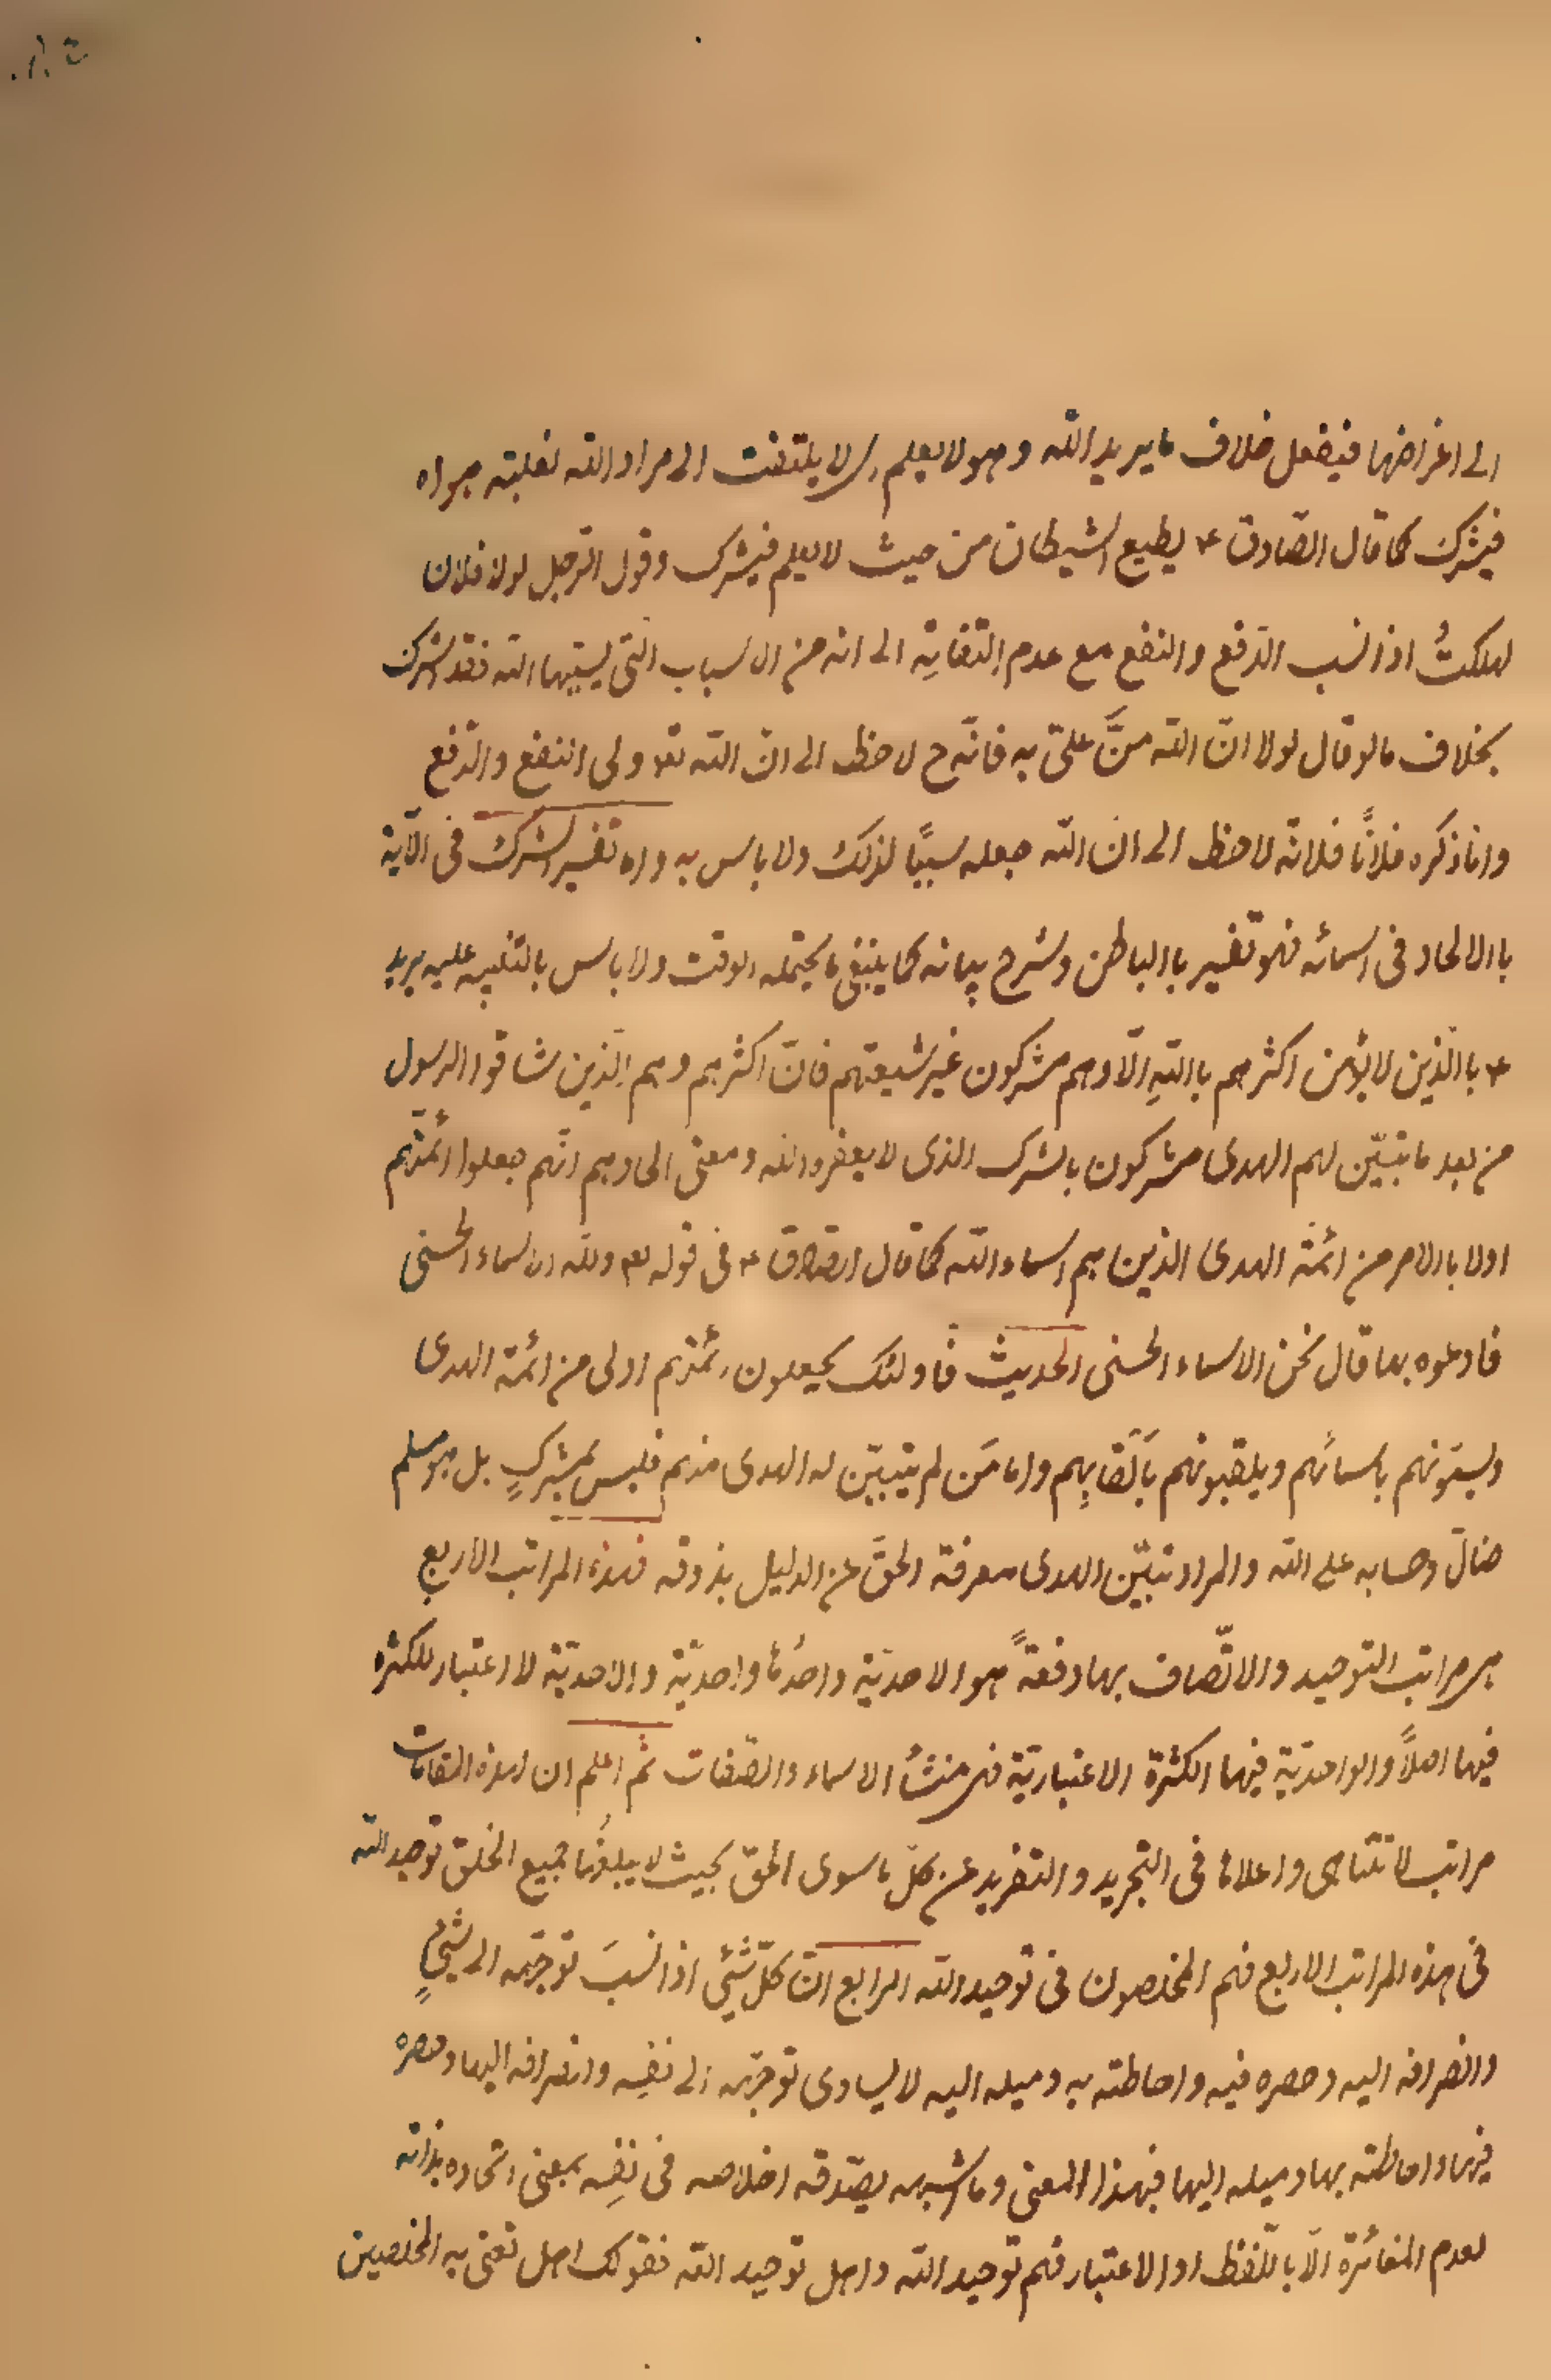 الى اغراضها فيفعل خلاف ما يريد الله وهو لا يعلم اى لا يلتفت الى مراد الله لغلبته هواه
فيشرك كما قال الصّادق ع يطيع الشيطان من حيث لا يعلم فيشرك وقول الرّجل لولا فلان
لهلكتُ اذا نسب الدّفع والنفع مع عدم اِلتفاتِه الى انه من الاسباب الّتى يسبّبها الله فقد اشرك
بخلاف ما لو قال لولا انّ الله منَّ علىّ به فانّه ح لاحظ الى انّ الله تعو ولى النفع والدّفع
وانما ذكره فلاناً فلانّه لاحظ الى ان الله جعله سبباً لذلك ولا باس به واما تفسير الشرك فى الآية
باالالحاد فى اسمائه فهو تفسير باالباطن وشرح بيانه كما ينبغى ما يحتمله الوقت ولا باس بالتنبيه عليه يريد
ع باالّذين لا يؤمن اكثرهم باالله الّا وهم مشركون غير شيعتهم فانّ اكثرهم وهم الّذين شاقوا الرسول
من بعد ما تبيّن لهم الهدى مشركون بالشرك الذى لا يغفره الله ومعنى الحادهم انّهم جعلوا ائمّتهم
اولا باالامر من ائمّة الهدى الذين هم اسماء الله كما قال الصّادق ع فى قوله تع ولله الاسماء الحسنى
فادعوه بها قال نحن الاسماء الحسنى الحديث فأولئك يجعلون ائمّتهم اولى من ائمّة الهدى
ويسمّونهم باسمائهم ويلقبونهم بَاَلْقابِهِم واما مَن لم يتبيّن له الهدى منهم فليس بمشركٍ بل هو مسلم
ضالّ وحسابه على الله والمراد بتبيّن الهدى معرفة الحقّ عن الدليل بذوقه فهذه المراتب الاربع
هى مراتب التوحيد والاتّصاف بها دفعةً هو الاحديّة واحدُها واحديّة والاحديّة لا اعتبار للكثره
فيها اصلاً والواحديّة فيها الكثرة الاعتباريّة فهى منشأ الاسماء والصّفات ثم اعلم ان لهذه المقامات
مراتب لا تتناهى واعلاها فى التجريد والتفريد عن كلّ ما سوى الحقّ بحيث لا يبلغُها جميع الخلق توحيد الله
فى هذه المراتب الاربع فهم المخلصون فى توحيد الله الرابع انّ كلّ شئى اذا نُسبَ توجّهه الى شئىٍ
وانصرافه اليه وحصره فيه واحاطته به وميله اليه لا يساوى توجّهه الى نفسِه وانصرافه اليها وحصره
فيها واحاطته بها وميله اليها فبهذا المعنى وما اشبهه يصّدقه اخلاصه فى نفسِه بمعنى اتّحاده بذاته
لعدم المغائرة الّا باللّفظ او الاعتبار فهم توحيد الله واهل توحيد الله فقولك اهل تعنى به المخلصين